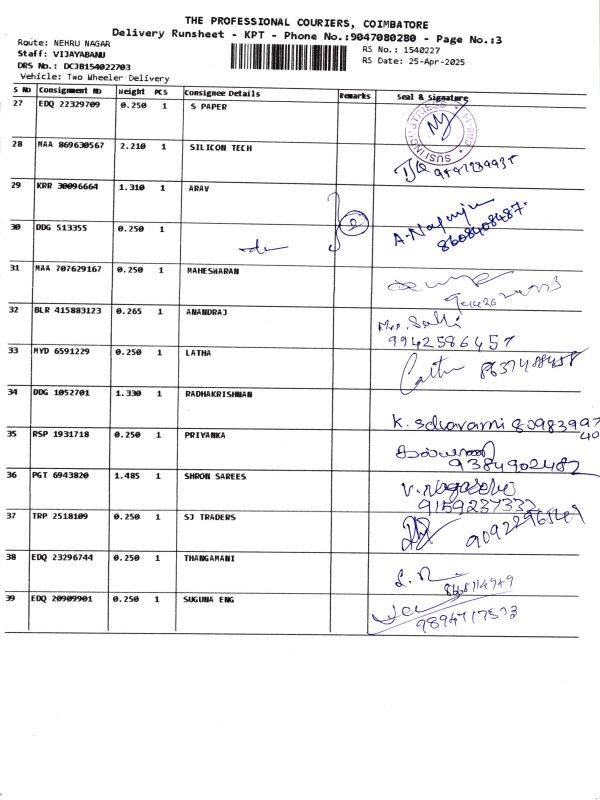 THE PROFESSIONAL COURIERS, COIMBATORE
Delivery Runsheet - KPT - Phone No.:9047080280 - Page No.:3
Route: NEHRU NAGAR
RS No.: 1540227
Staff: VIJAYABANU
RS Date: 25-Apr-2025
DRS No.: DCJB154022703
Vehicle: Two Wheeler Delivery
S No Consignment No Weight PCS Consignee Details Remarks Seal & Signature
27 EDQ 22329709 0.250 1 S PAPER
28 MAA 869630567 2.210 1 SILICON TECH
29 KRR 30096664 1.310 1 ARAV
30 DDG 513355 0.250 1
8608408487.
31 MAA 707629167 0.250 1 MAHESWARAN
32 BLR 415883123 0.265 1 ANANDRAJ
9942586457
33 MYD 6591229 0.250 1 LATHA
8637488458
34 DDG 1052701 1.330 1 RADHAKRISHNAN
35 RSP 1931718 0.250 1 PRIYANKA
9384902482
36 PGT 6943820 1.485 1 SHRON SAREES
9159237332
37 TRP 2518109 0.250 1 SJ TRADERS
38 EDQ 23296744 0.250 1 THANGAMANI
39 EDQ 20909901 0.250 1 SUGUNA ENG
9894717533